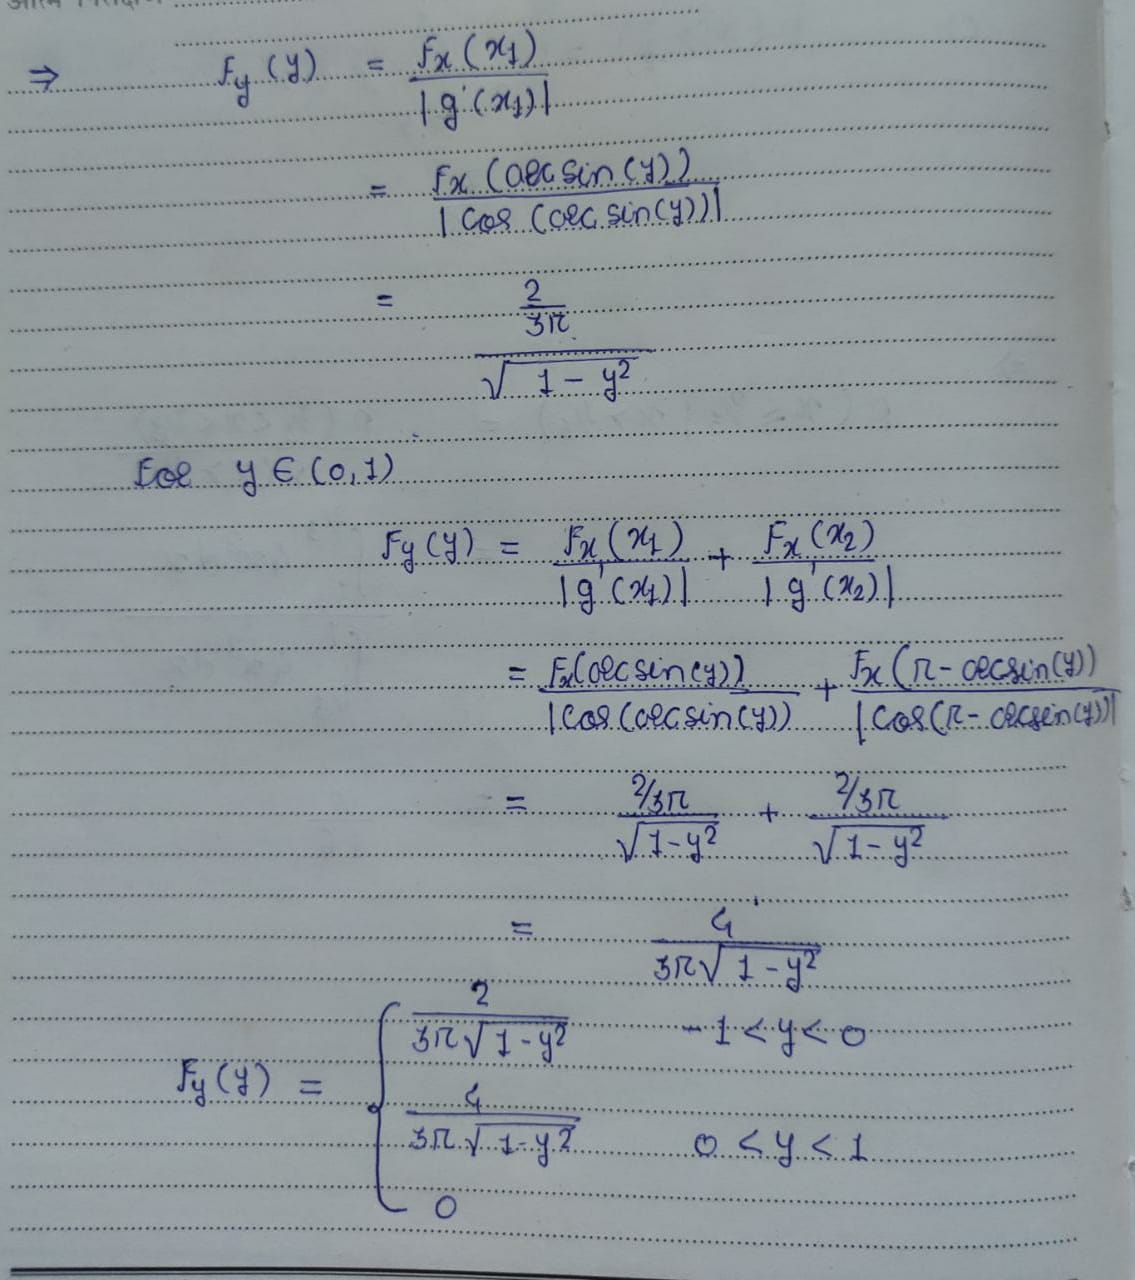 ⇒ Fy (y) = Fx (x1) / |g'(x1)|
= Fx (arc sin (y)) / |cos (arc sin(y))|
= 2/3π / √1 - y²
For y ∈ (0,1)
Fy (y) = Fx (x1) / |g'(x1)| + Fx (x2) / |g'(x2)|
= Fx(arc sin(y)) / |cos (arc sin(y)) + Fx (π - arcsin(y)) / |cos(π - arcsin(y))|
= 2/3π / √1-y² + 2/3π / √1-y²
= 4 / 3π√1-y²
Fy (y) = { 2 / 3π√1-y² -1 < y < 0
4 / 3π√1-y² 0 < y < 1
0